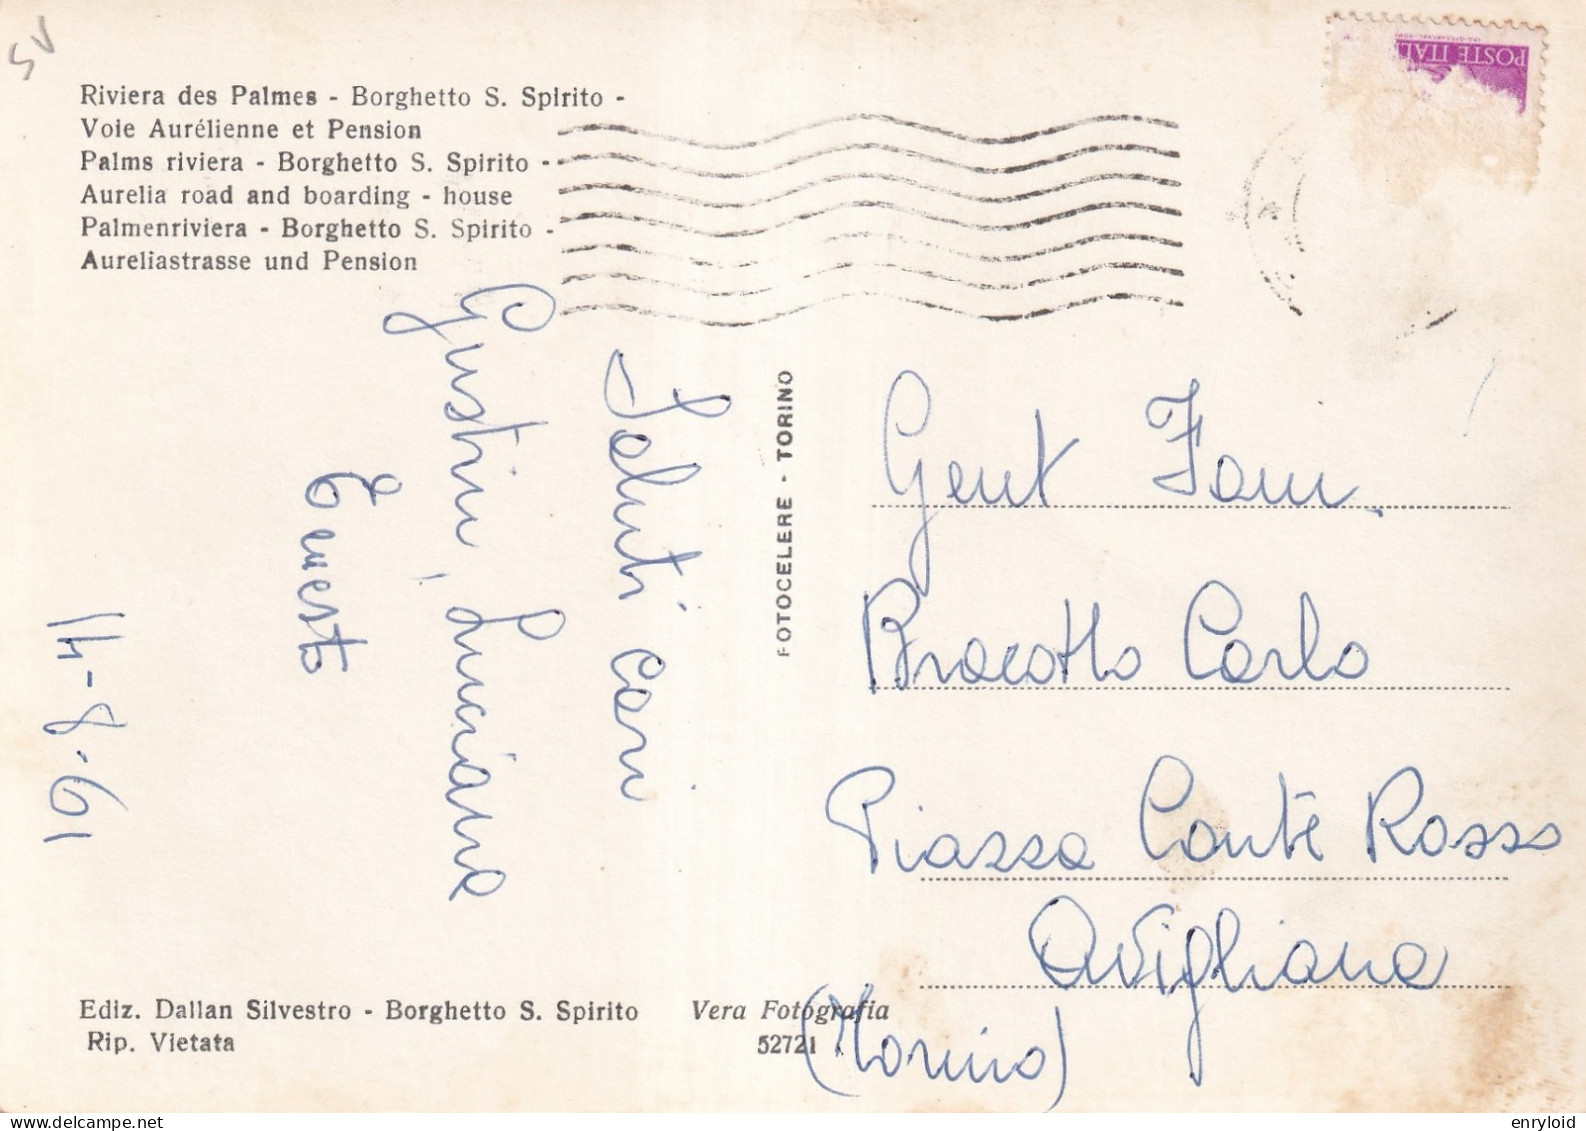 SV
Riviera des Palmes - Borghetto S. Spirito -
Voie Aurélienne et Pension
Palms riviera - Borghetto S. Spirito -
Aurelia road and boarding - house
Palmenriviera - Borghetto S. Spirito -
Aureliastrasse und Pension
POSTE ITAL
Saluti cari
Giustin, Luciana
Ernesto
14-8-61
FOTOCELERE - TORINO
Gent Fam.
Bracotto Carlo
Piazza Conte Rosso
Avigliana
(Torino)
Ediz. Dallan Silvestro - Borghetto S. Spirito
Rip. Vietata
Vera Fotografia
52721
enryloid